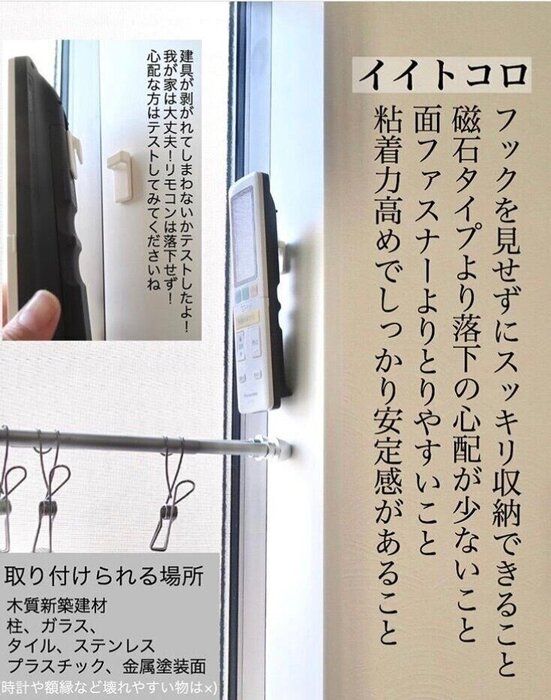 イイトコロ
フックを見せずにスッキリ収納できること
磁石タイプより落下の心配が少ないこと
面ファスナーよりとりやすいこと
粘着力高めでしっかり安定感があること
建具が剥がれてしまわないかテストしたよ！
我が家は大丈夫！リモコンは落下せず！
心配な方はテストしてみてくださいね
取り付けられる場所
木質新築建材
柱、ガラス、
タイル、ステンレス
プラスチック、金属塗装面
時計や額縁など壊れやすい物は×)